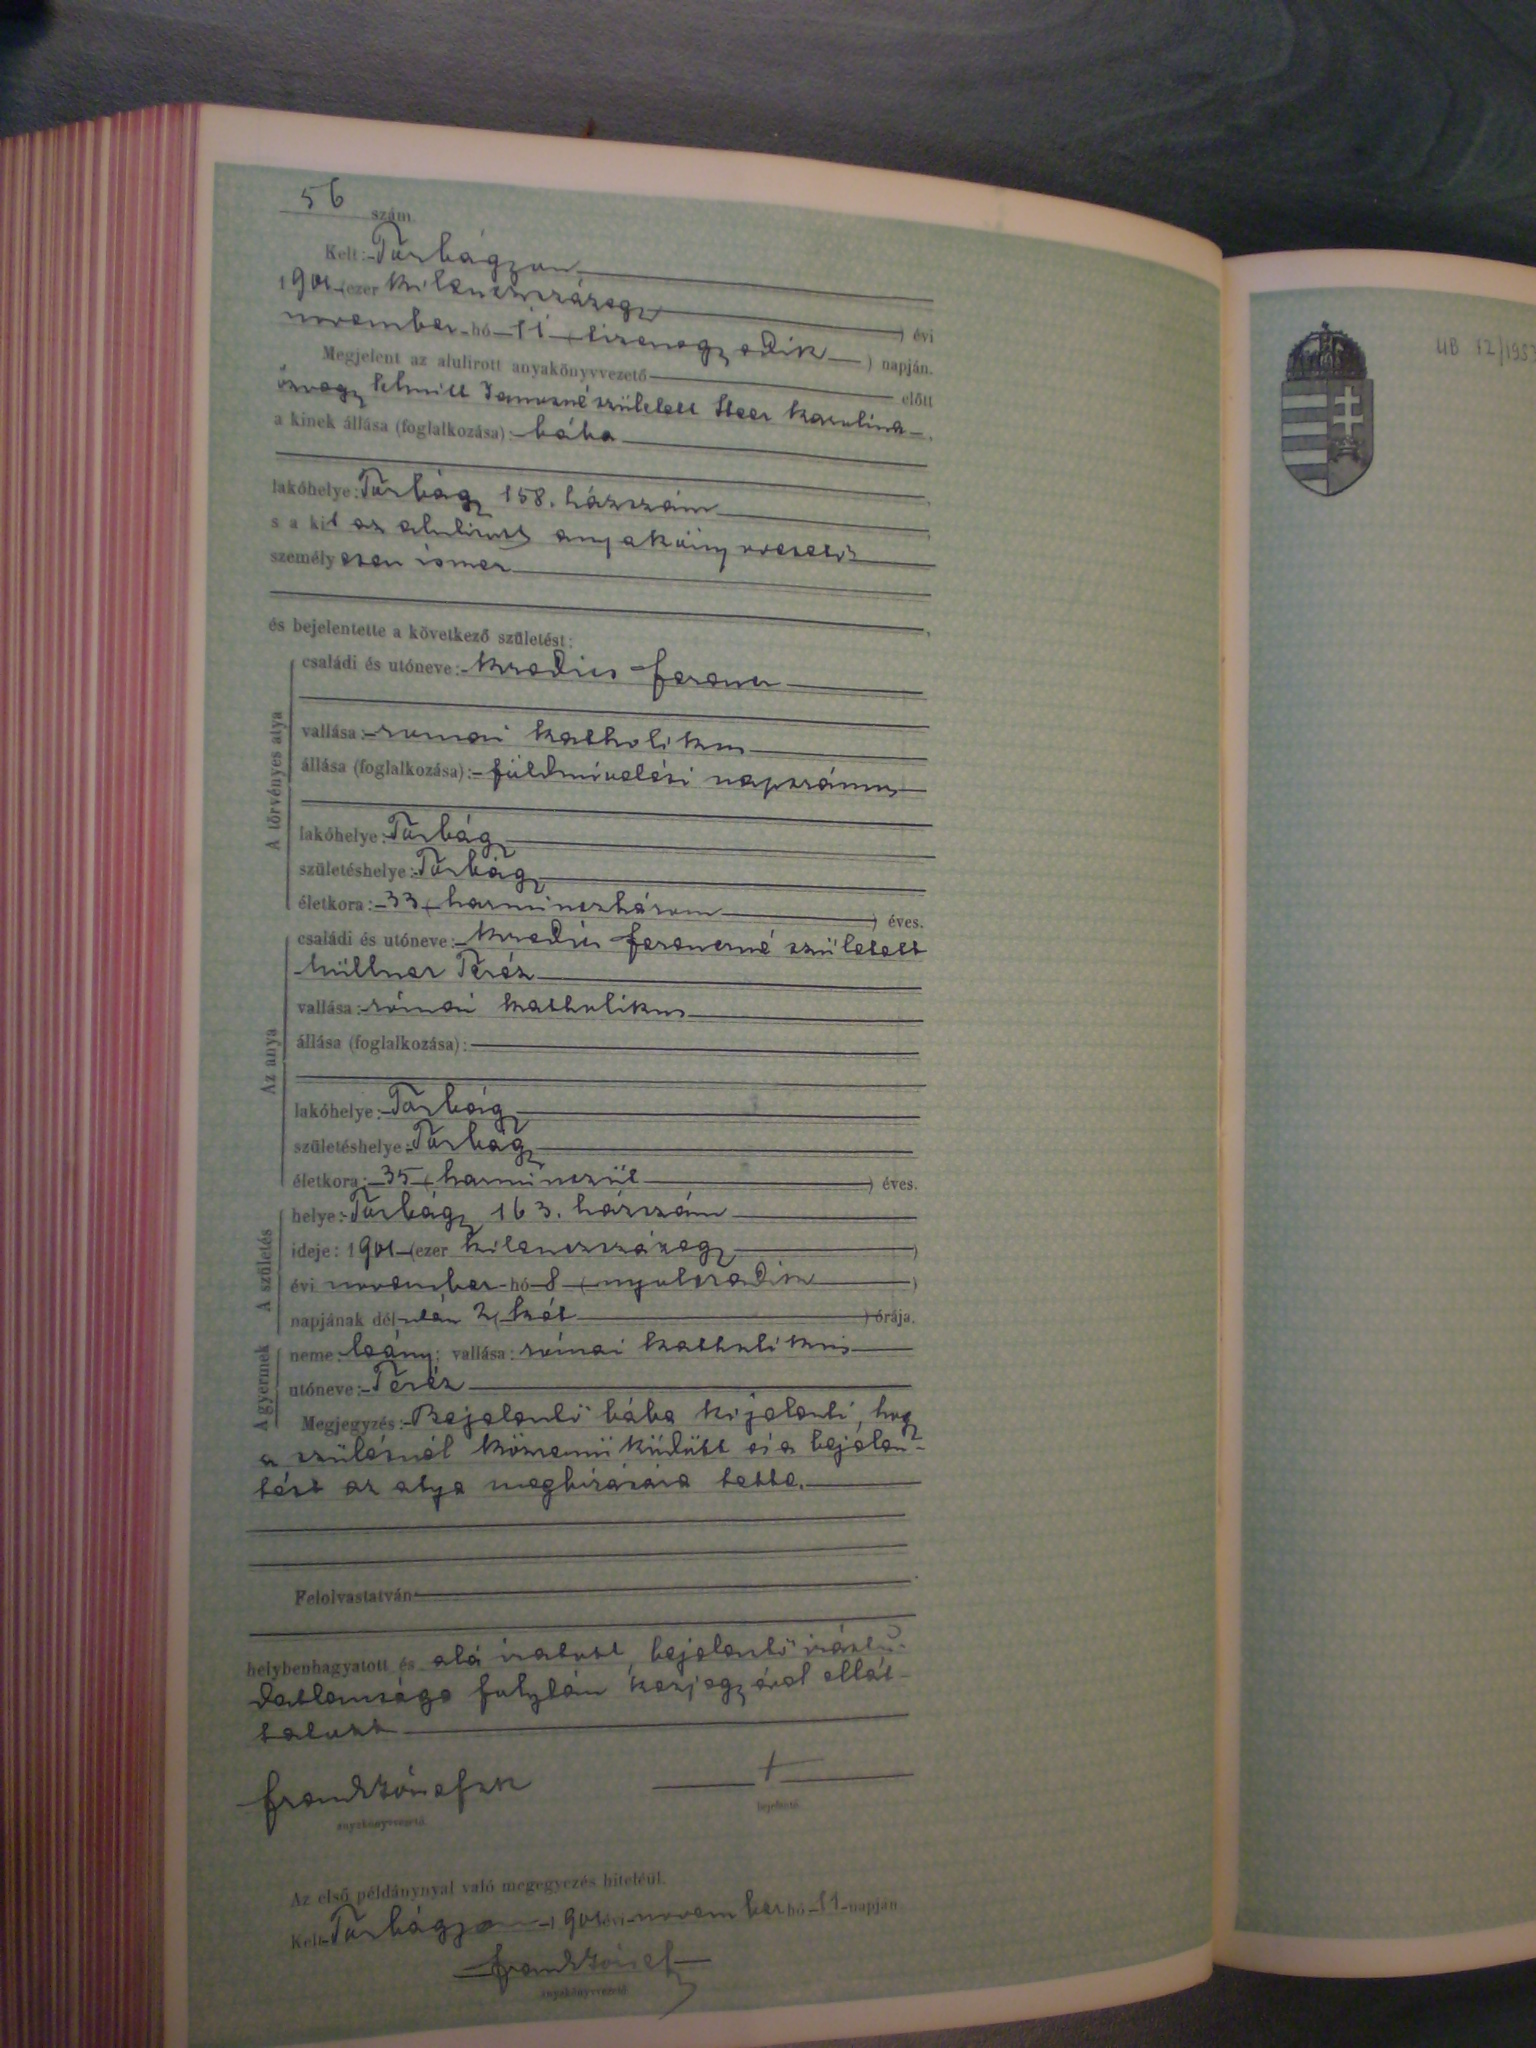 56 szám
Kelt: Törbágyon
1901 (ezer kilenczszázegy) évi
november hó 11 (tizenegyedik) napján.
Megjelent az alulirott anyakönyvvezető előtt
özvegy Schmitt Jánosné született Steer Karolina
a kinek állása (foglalkozása): bába
lakóhelye: Törbágy 158. házszám
s a kit az alulirott anyakönyvvezető
személyesen ismer
és bejelentette a következő születést:
A törvényes atya
családi és utóneve: Ferencz
vallása: romai katholikus
állása (foglalkozása): földmivelési napszámos
lakóhelye: Törbágy
születéshelye: Törbágy
életkora: 33 (harminczhárom) éves.
Az anya
családi és utóneve: Ferenczné született
Hüllner Teréz
vallása: római katholikus
állása (foglalkozása):
lakóhelye: Törbágy
születéshelye: Törbágy
életkora: 35 (harminczöt) éves.
A születés
helye: Törbágy 163. házszám
ideje: 1901 (ezer kilenczszázegy)
évi november hó 8 (nyolczadik)
napjának délután 2 (két) órája.
A gyermek
neme: leány; vallása: római katholikus
utóneve: Teréz
Megjegyzés: Bejelentő bába kijelenti, hogy
a szülésnél közremüködött és a bejelen-
tést az atya megbizására tette.
Felolvastatván
helybenhagyatott és alá iratott, bejelentő irástu-
datlansága folytán kézjegyével ellát-
tatott
anyakönyvvezető
+
bejelentő
Az első példánynyal való megegyezés hiteléül.
Kelt Törbágyon 1901 évi november hó 11 napján
anyakönyvvezető